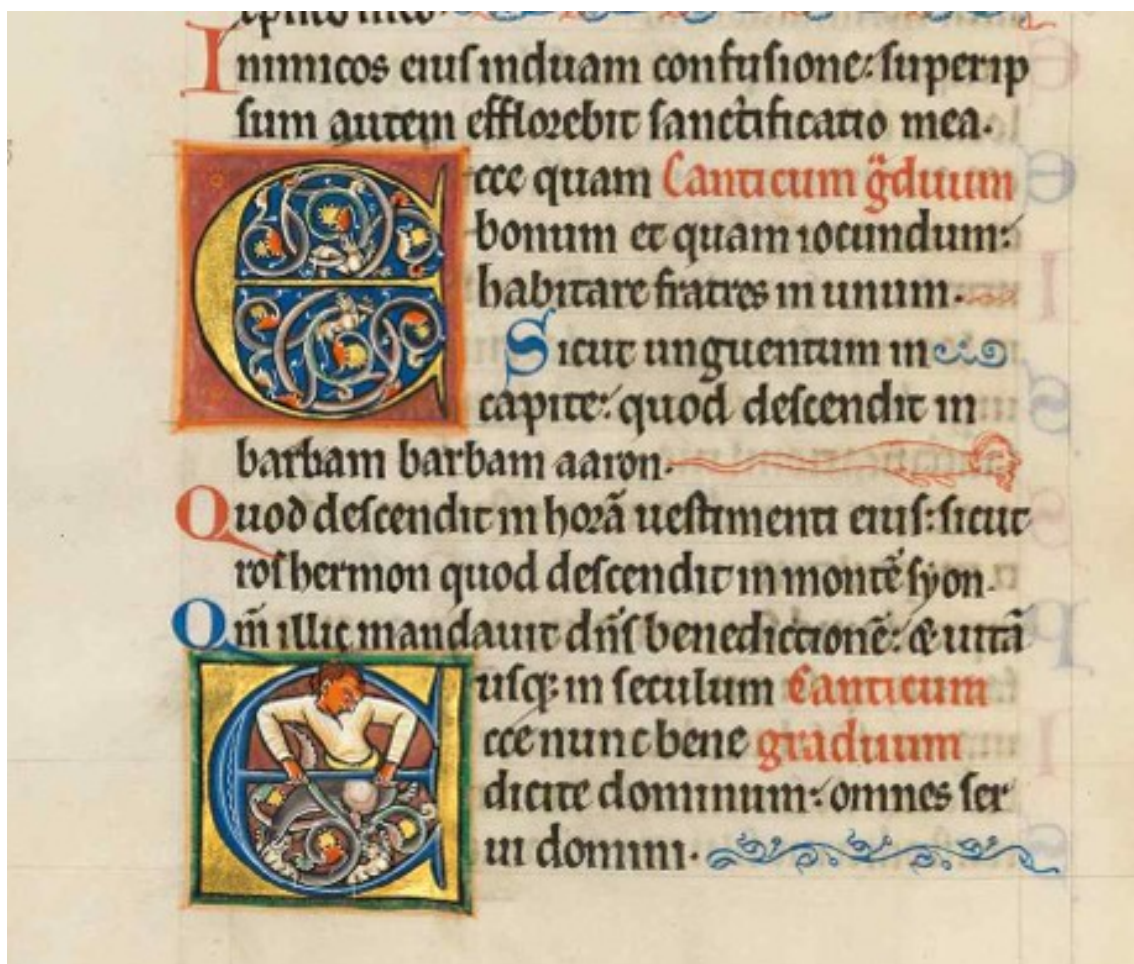 Inimicos eiuſ induam confuſione: ſuperip
ſum autem efflorebit ſanctificatio mea.
Ecce quam Canticum gͣduum
bonum et quam iocundum:
habitare fratres in unum.
Sicut unguentum in
capite: quod deſcendit in
barbam barbam aaron.
Quod deſcendit in horā ueſtimenti eiuſ: ſicut
roſ hermon quod deſcendit in montē ſyon.
Qm̄ illic mandauit dn̄ſ benedictionē: & uitā
uſq; in ſeculum Canticum
Ecce nunc bene graduum
dicite dominum: omnes ſer
ui domini.